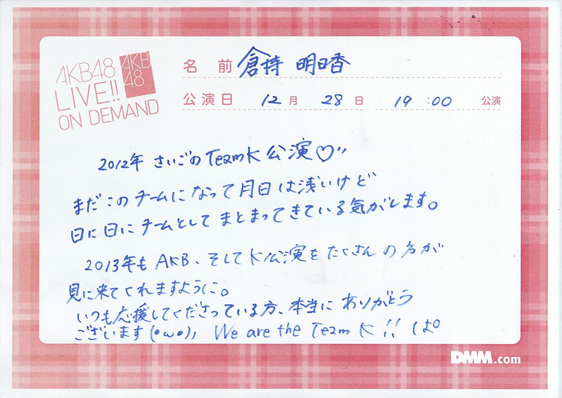 AKB48
LIVE!!
ON DEMAND
AKB
48
名 前 倉持 明日香
公演日 12 月 28 日 19 :00 公演
2012年 さいごのTeamK公演♡
まだこのチームになって月日は浅いけど
日に日にチームとしてまとまってきている気がします。
2013年もAKB、そしてK公演をたくさんの方が
見に来てくれますように。
いつも応援してくださっている方、本当にありがとう
ございます(●ω●), We are the Team K !! ぱ
DMM.com